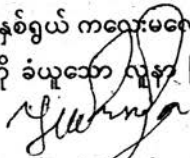 နှစ်ရွယ် ကလေးမလေ
ကို ခံယူသော လူနာ